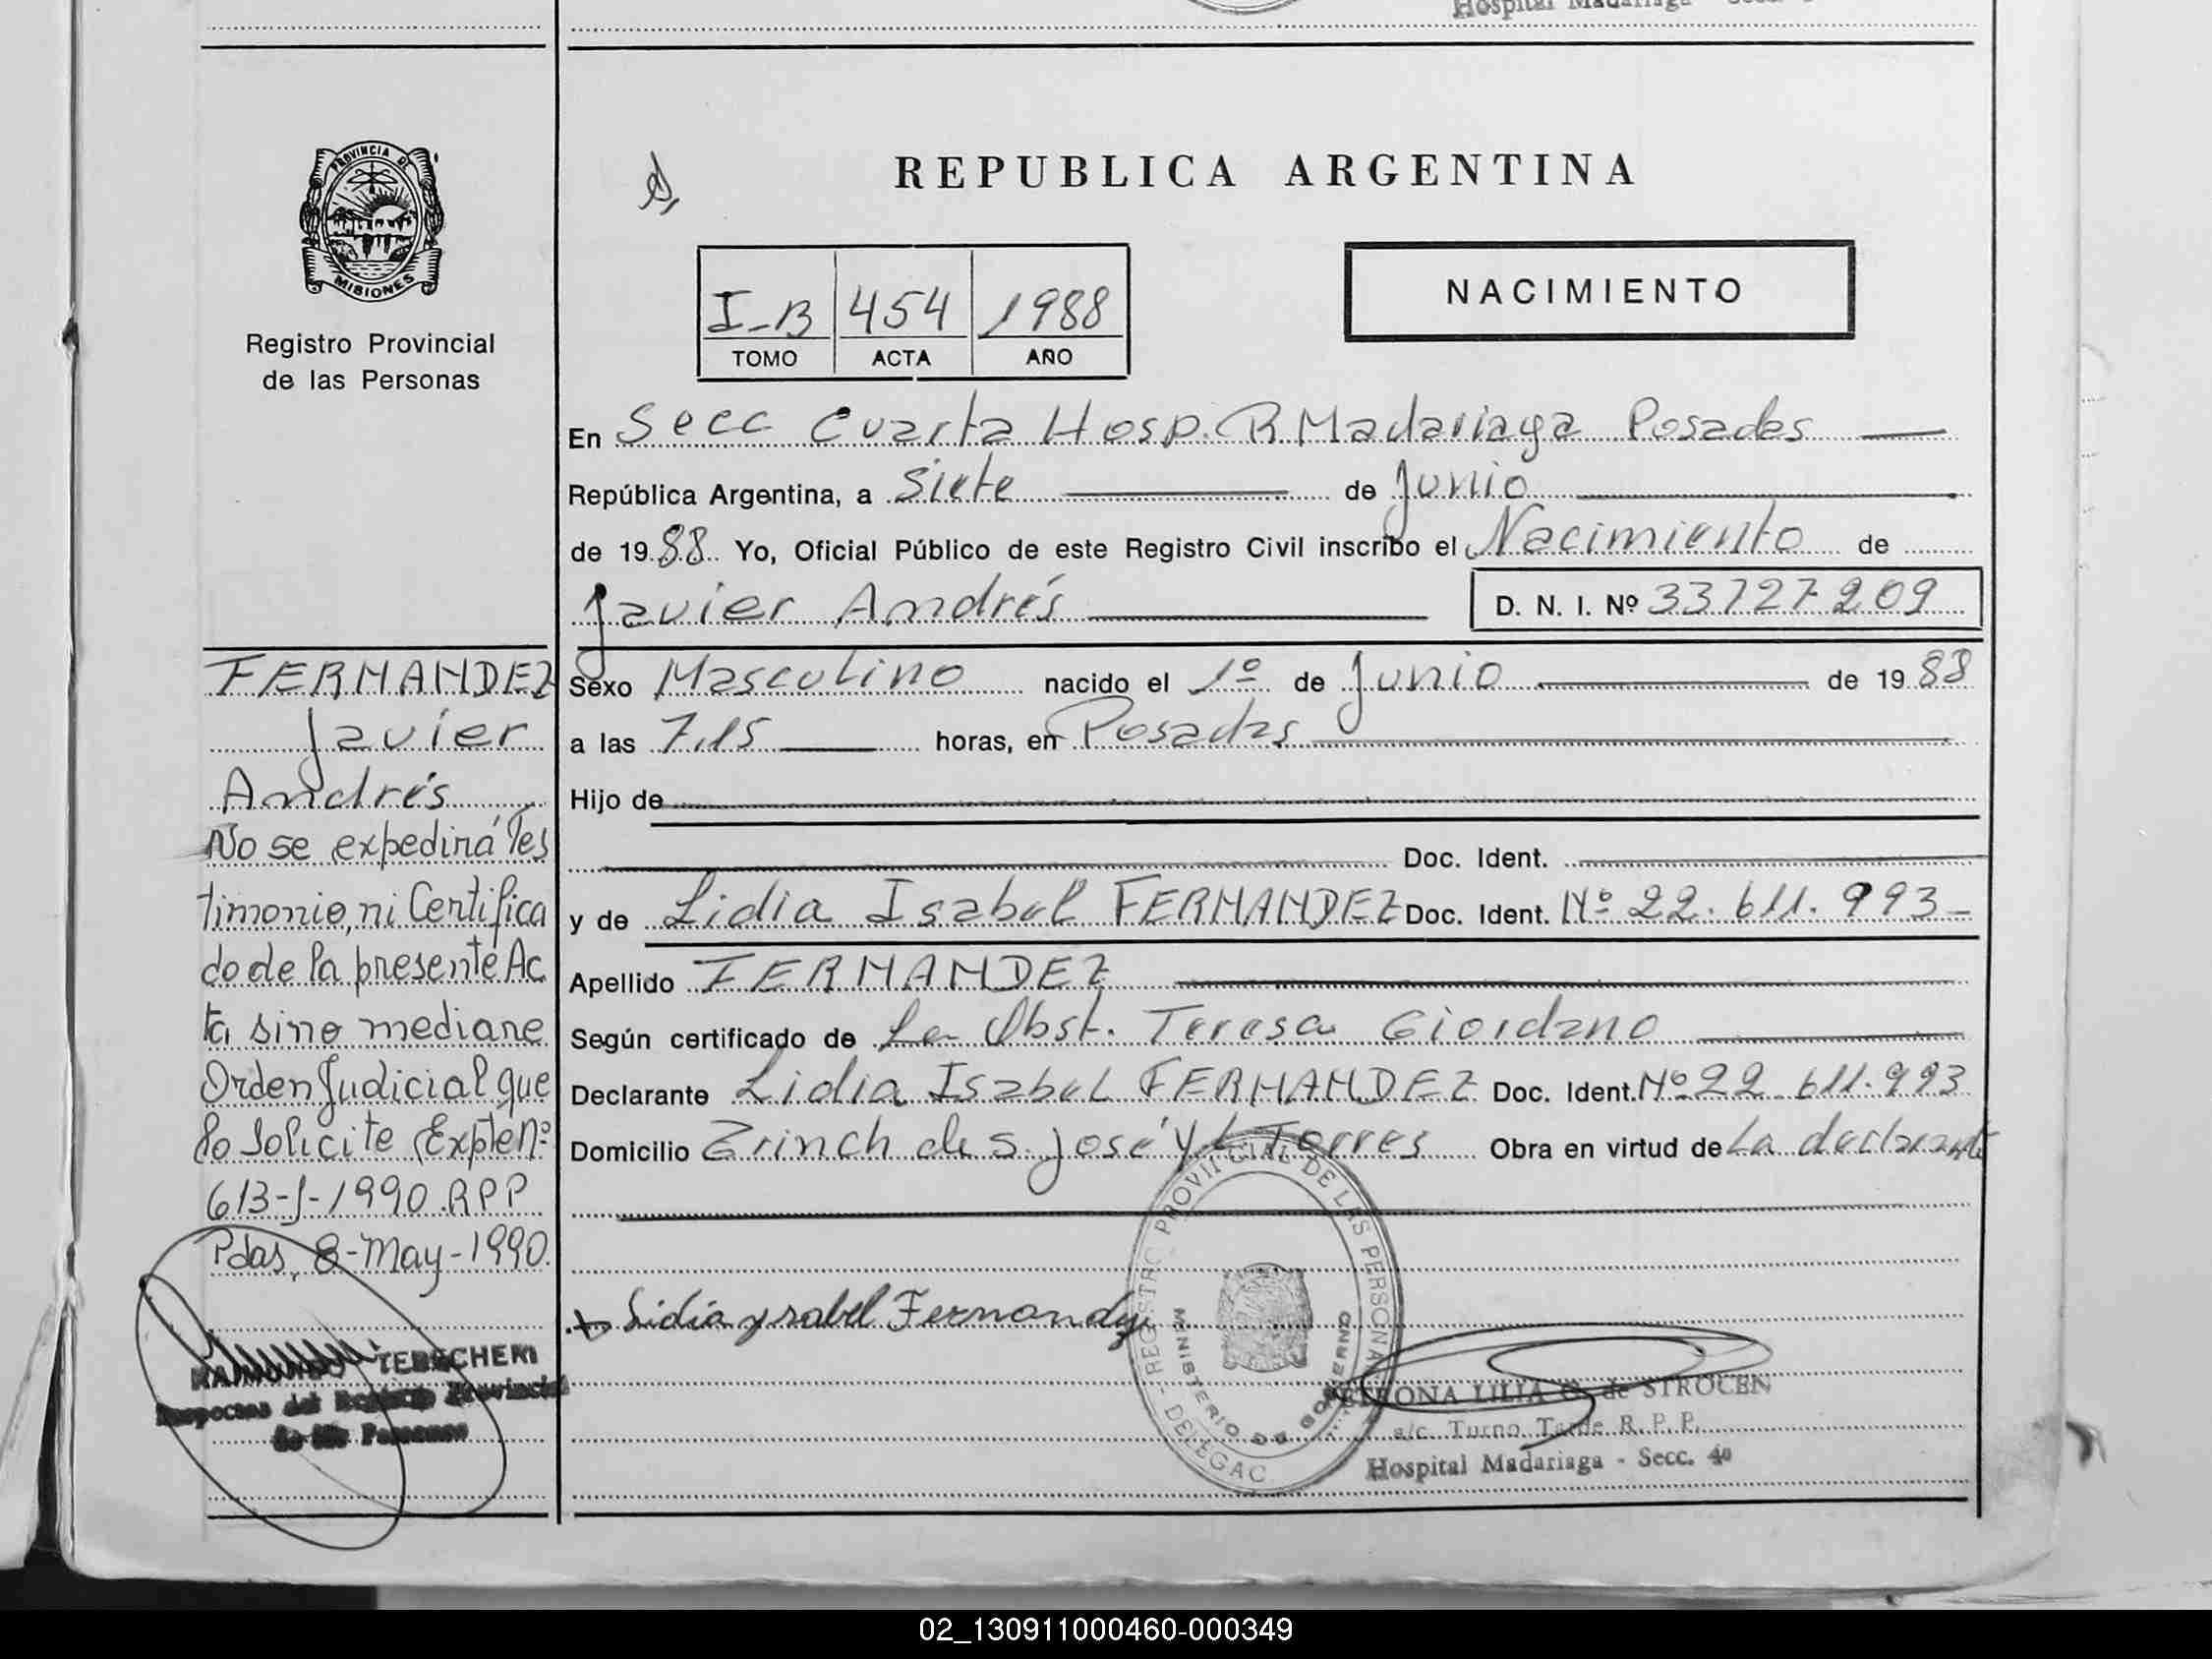 Hospital Madariaga - Secc.
PROVINCIA DE
MISIONES
Registro Provincial
de las Personas
REPUBLICA ARGENTINA
NACIMIENTO
I-B 454 1988
TOMO ACTA AÑO
En Secc Cuarta Hosp. R Madariaga Posadas
República Argentina, a Siete de Junio
de 1988 Yo, Oficial Público de este Registro Civil inscribo el Nacimiento de
Javier Andrés D. N. I. Nº 33727209
Sexo Masculino nacido el 1º de Junio de 1988
a las 7,15 horas, en Posadas
Hijo de
Doc. Ident.
y de Lidia Isabel FERNANDEZ Doc. Ident. Nº 22.611.993
Apellido FERNANDEZ
Según certificado de La Obst. Teresa Giordano
Declarante Lidia Isabel FERNANDEZ Doc. Ident. Nº 22.611.993
Domicilio de S. José y L Torres Obra en virtud de La declarante
FERNANDEZ
Javier
Andrés
No se expedirá Tes
timonio, ni Certifica
do de la presente Ac
ta sino mediane
Orden Judicial que
lo Solicite Expte Nº
613-J-1990.RPP
Pdas, 8-May-1990.
RAIMUNDO
del Registro Provincial
de las Personas
Lidia ysabel Fernandez
REGISTRO PROVINCIAL DE LAS PERSONAS - DELEGAC
MINISTERIO DE GOBIERNO
PETRONA LILIA G. de STROCEN
a/c. Turno Tarde R. P. P.
Hospital Madariaga - Secc. 4a
02_130911000460-000349